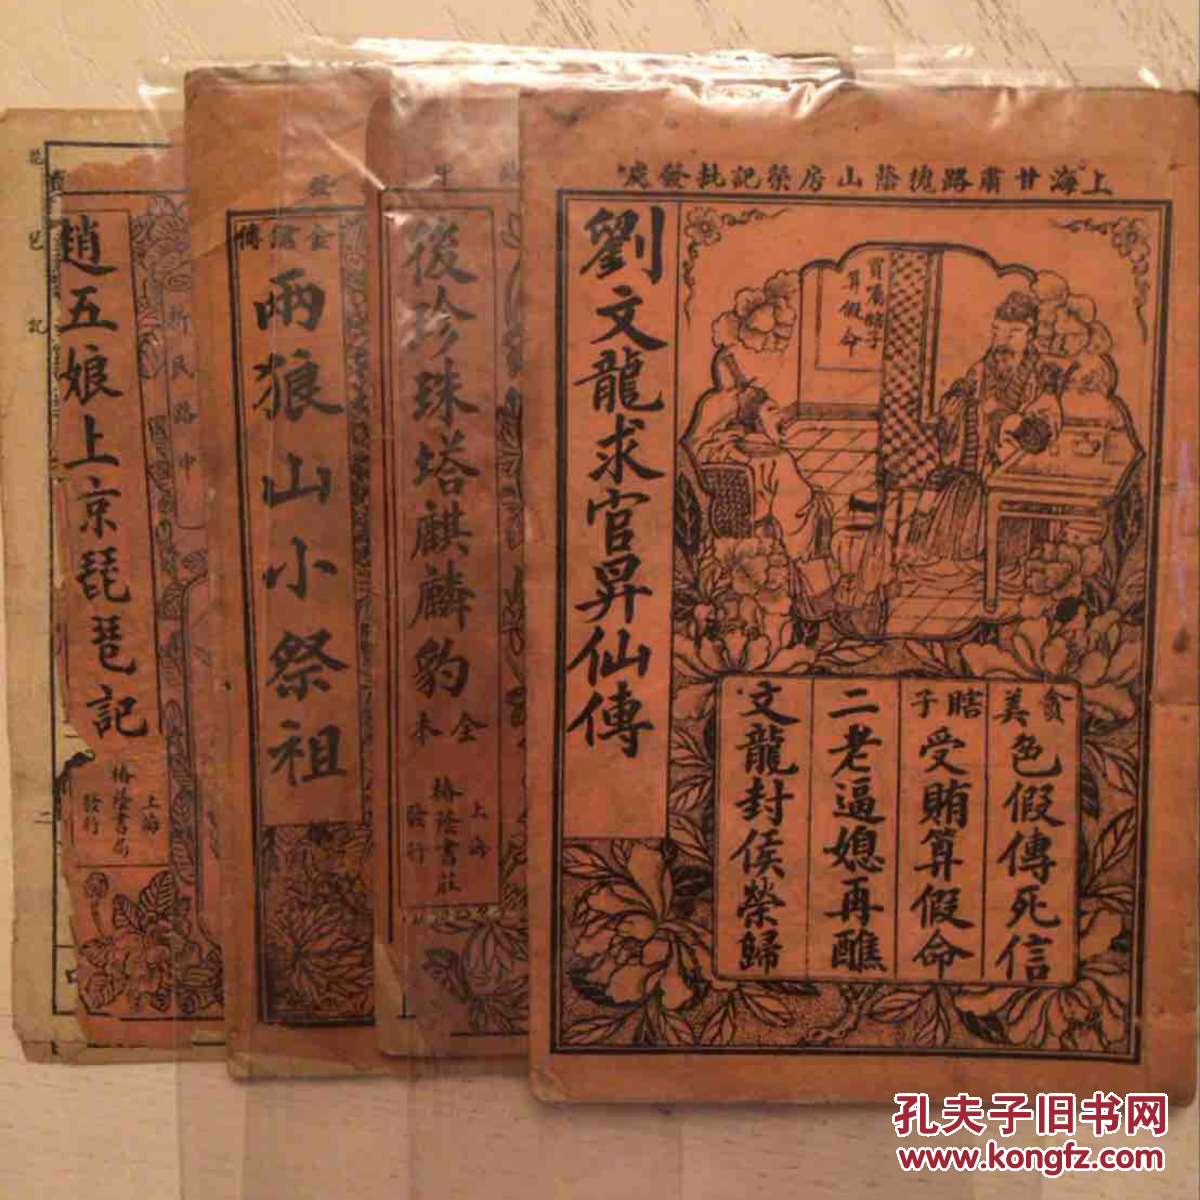 上海甘肅路槐蔭山房榮記批發處
劉文龍求官昇仙傳
買屬瞎子
算假命
貪美色假傳死信
瞎子受賄算假命
二老逼媳再醮
文龍封侯榮歸
後珍珠塔麒麟豹
全本
上海
椿蔭書莊
發行
兩狼山小祭祖
趙五娘上京琵琶記
新民路中
上海
椿蔭書局
發行
孔夫子旧书网
www.kongfz.com